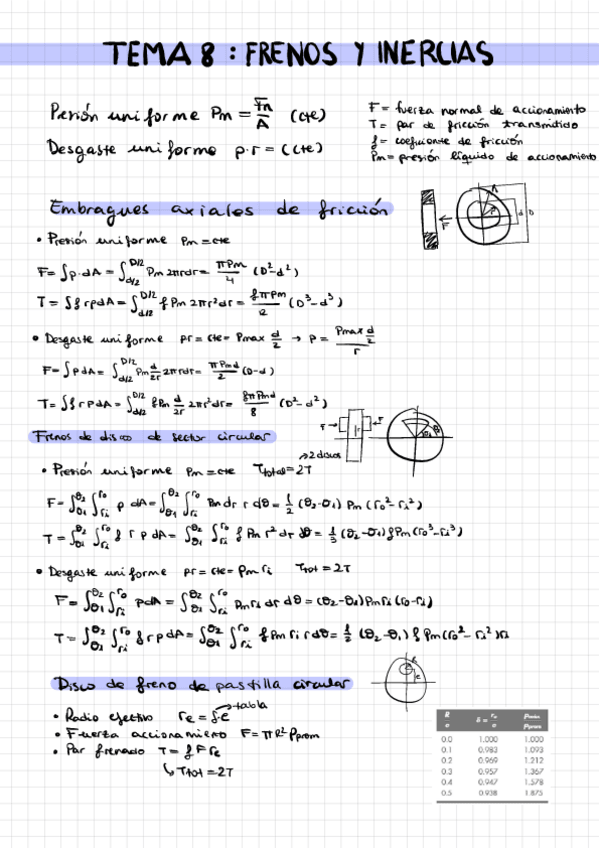 TEMA 8 : FRENOS Y INERCIAS
Presión uniforme Pm = Fn/A (cte)
Desgaste uniforme p·r = (cte)
F = fuerza normal de accionamiento
T = par de fricción transmitido
f = coeficiente de fricción
Pm = presión líquido de accionamiento
Embragues axiales de fricción
• Presión uniforme Pm = cte
F = ∫p·dA = ∫_{d/2}^{D/2} Pm 2πrdr = πPm/4 (D²-d²)
T = ∫f r p dA = ∫_{d/2}^{D/2} f Pm 2πr²dr = fπPm/12 (D³-d³)
• Desgaste uniforme pr = cte = Pmax d/2 → p = Pmax d/2 / r
F = ∫p dA = ∫_{d/2}^{D/2} Pm d/2r 2πrdr = πPmd/2 (D-d)
T = ∫f r p dA = ∫_{d/2}^{D/2} f Pm d/2r 2πr²dr = fπPmd/8 (D²-d²)
Frenos de disco de sector circular
→ 2 discos
• Presión uniforme Pm = cte Ttotal = 2T
F = ∫_{θ1}^{θ2} ∫_{ri}^{ro} p dA = ∫_{θ1}^{θ2} ∫_{ri}^{ro} Pm dr r dθ = 1/2 (θ2-θ1) Pm (ro²-ri²)
T = ∫_{θ1}^{θ2} ∫_{ri}^{ro} f r p dA = ∫_{θ1}^{θ2} ∫_{ri}^{ro} f Pm r² dr dθ = 1/3 (θ2-θ1) f Pm (ro³-ri³)
• Desgaste uniforme pr = cte = Pm ri Ttot = 2T
F = ∫_{θ1}^{θ2} ∫_{ri}^{ro} p dA = ∫_{θ1}^{θ2} ∫_{ri}^{ro} Pm ri dr dθ = (θ2-θ1) Pm ri (ro-ri)
T = ∫_{θ1}^{θ2} ∫_{ri}^{ro} f r p dA = ∫_{θ1}^{θ2} ∫_{ri}^{ro} f Pm ri r dθ = 1/2 (θ2-θ1) f Pm (ro²-ri²) ri
Disco de freno de pastilla circular
• Radio efectivo re = δ·e → tabla
• Fuerza accionamiento F = πR² Pprom
• Par frenado T = f F re
↳ Ttot = 2T
R/e δ = re/e Pmáx/Pprom
0.0 1.000 1.000
0.1 0.983 1.093
0.2 0.969 1.212
0.3 0.957 1.367
0.4 0.947 1.578
0.5 0.938 1.875